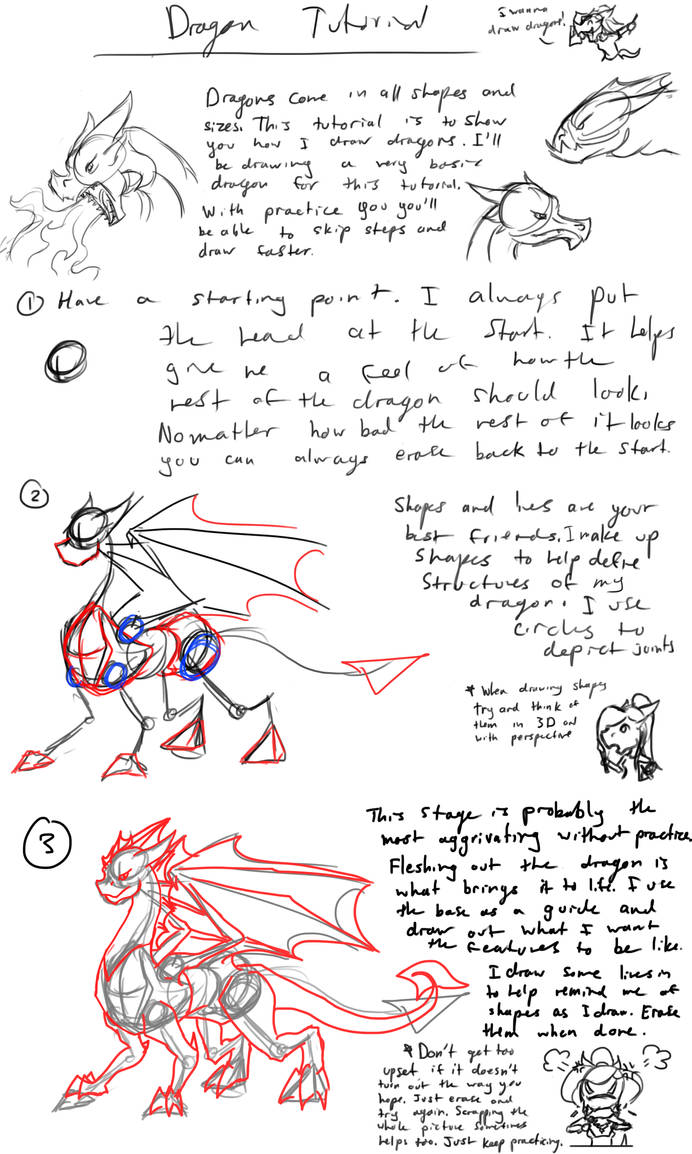 Dragon Tutorial
I wanna
draw dragons!
Dragons come in all shapes and
sizes. This tutorial is to show
you how I draw dragons. I'll
be drawing a very basic
dragon for this tutorial.
With practice you you'll
be able to skip steps and
draw faster.
1 Have a starting point. I always put
the head at the start. It helps
give me a feel of how the
rest of the dragon should look.
No matter how bad the rest of it looks
you can always erase back to the start.
2
Shapes and lines are your
best friends. I make up
shapes to help define
structures of my
dragon. I use
circles to
depict joints
* When drawing shapes
try and think of
them in 3D and
with perspective
3
This stage is probably the
most aggrivating without practice.
Fleshing out the dragon is
what brings it to life. I use
the base as a guide and
draw out what I want
the features to be like.
I draw some lines in
to help remind me of
shapes as I draw. Erase
them when done.
* Don't get too
upset if it doesn't
turn out the way you
hope. Just erase and
try again. Scrapping the
whole picture sometimes
helps too. Just keep practicing.